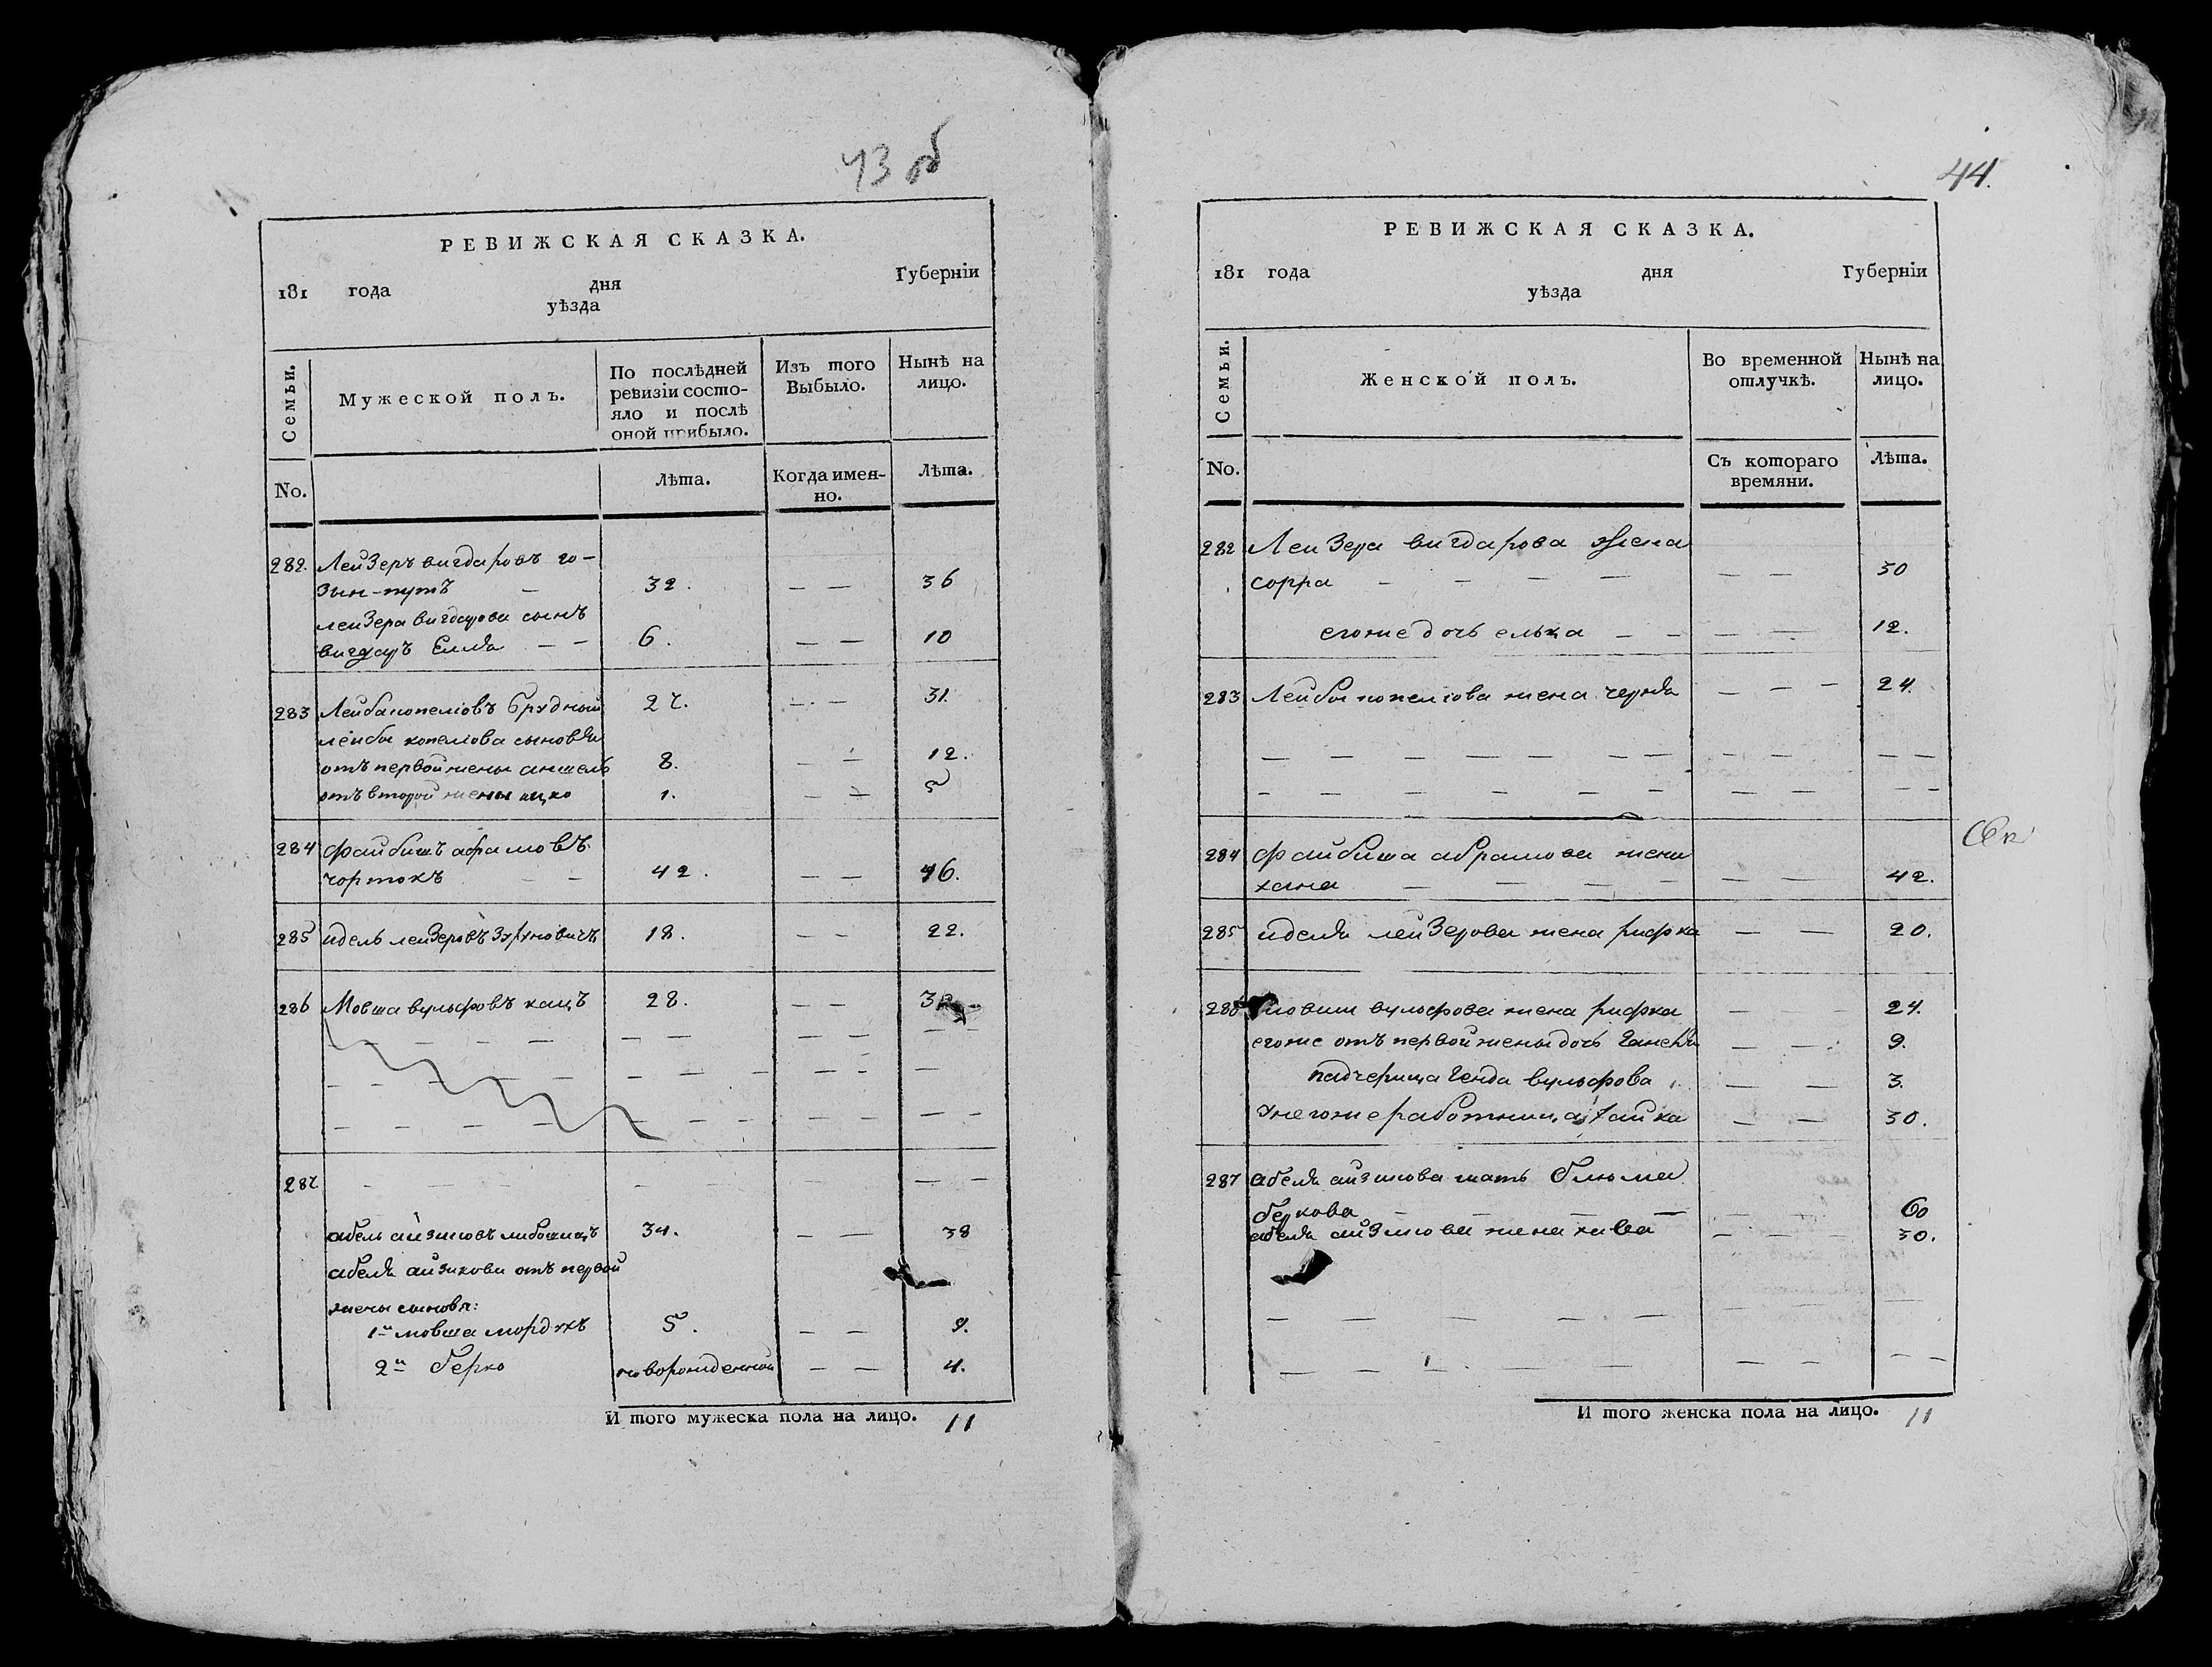 43 об
РЕВИЖСКАЯ СКАЗКА.
181 года дня Губерніи
уѣзда
Семьи.
Мужеской полъ.
По послѣдней ревизіи состо-
яло и послѣ
оной прибыло.
Изъ того
Выбыло.
Нынѣ на
лицо.
No.
Лѣта.
Когда имен-
но.
Лѣта.
282. Лейзеръ вигдаровъ го-
зын-путъ — 32. — — 36
лейзера вигдарова сынъ
вигдаръ Еиля — — 6. — — 10
283 Лейба копеліовъ брудный 27. — — 31.
лейбы копеліова сыновья
отъ первой жены аншель 8. — — 12.
отъ второй жены ицко 1. — — 5
284 файбишъ абрамовъ
чортокъ — — 42. — — 46.
285 идель лейзеровъ 18. — — 22.
286 Мовша вульфовъ кацъ 28. — —
287
абель айзиковъ 34. — — 38
абеля айзикова отъ первой
жены сыновя:
1й мовша мордухъ 5. — — 9.
2й берко новорожденный — — 4.
И того мужеска пола на лицо. 11
44.
РЕВИЖСКАЯ СКАЗКА.
181 года дня Губерніи
уѣзда
Семьи.
Женской полъ.
Во временной
отлучкѣ.
Нынѣ на
лицо.
No.
Съ котораго
времяни.
Лѣта.
282 Лейзера вигдарова жена
сорра — — — — — — 30
егоже дочь елька — — — — 12.
283 Лейбы копеліова жена черня — — — 24.
284 файбиша абрамова жена
хана — — — — — — 42.
285 иделя лейзерова жена рифка — — 20.
286 мовши вульфова жена рифка — — — 24.
егоже отъ первой жены дочь — — 9.
падчерица генда вульфова — — 3.
унегоже работница хайка — — 30.
287 абеля айзикова мать блюма
беркова — — — 60
абеля айзикова жена хава — — — 30.
И того женска пола на лицо. 11